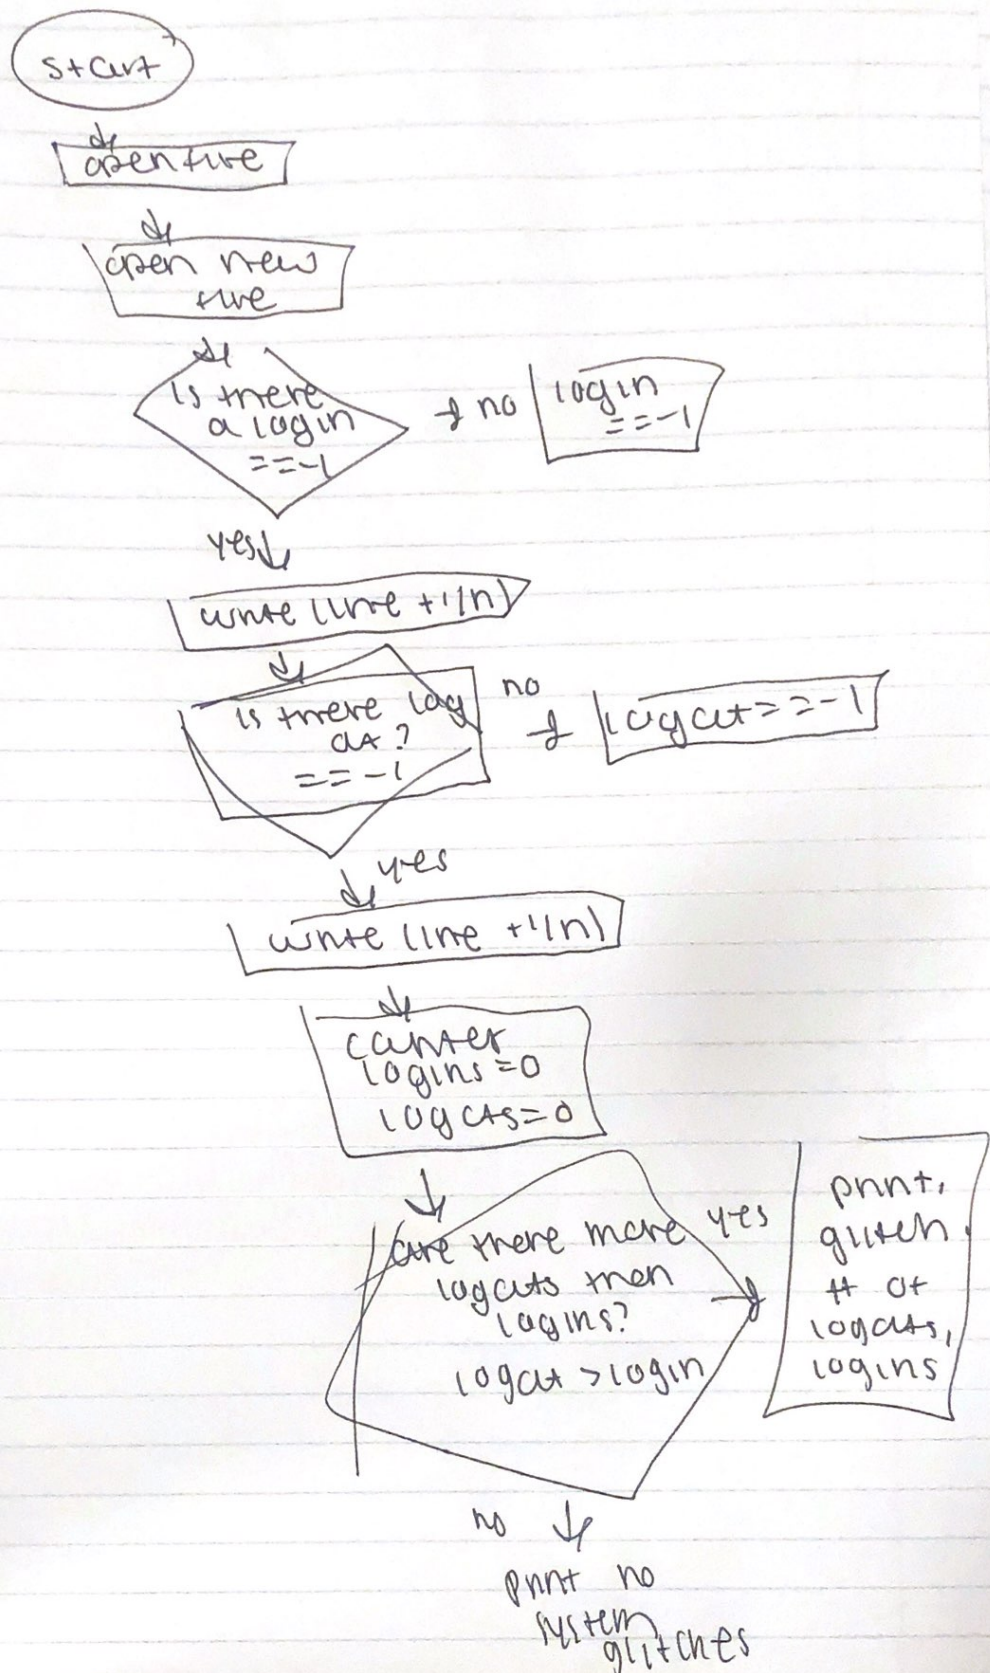 start
open file
open new
file
is there
a login
==-1
no
login
==-1
yes
write (line +'/n)
is there log
out?
==-1
no
logout==-1
yes
write (line +'/n)
counter
logins=0
logouts=0
are there more
logouts then
logins?
logout >login
yes
print,
glitch
# of
logouts,
logins
no
print no
system
glitches